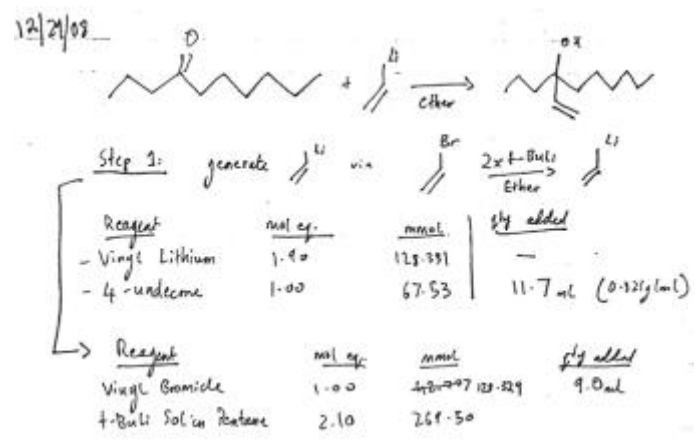 12/29/08
O
Li
OH
+
Ether
Step 1: generate Li via Br 2x t-BuLi Li
Ether
Reagent mol eq. mmol qty added
- Vinyl Lithium 1.90 128.331 —
- 4-undecone 1.00 67.53 11.7 mL (0.825g/mL)
Reagent mol eq. mmol qty added
Vinyl Bromide 1.00 128.329 9.0mL
t-BuLi Sol'in Pentane 2.10 269.50